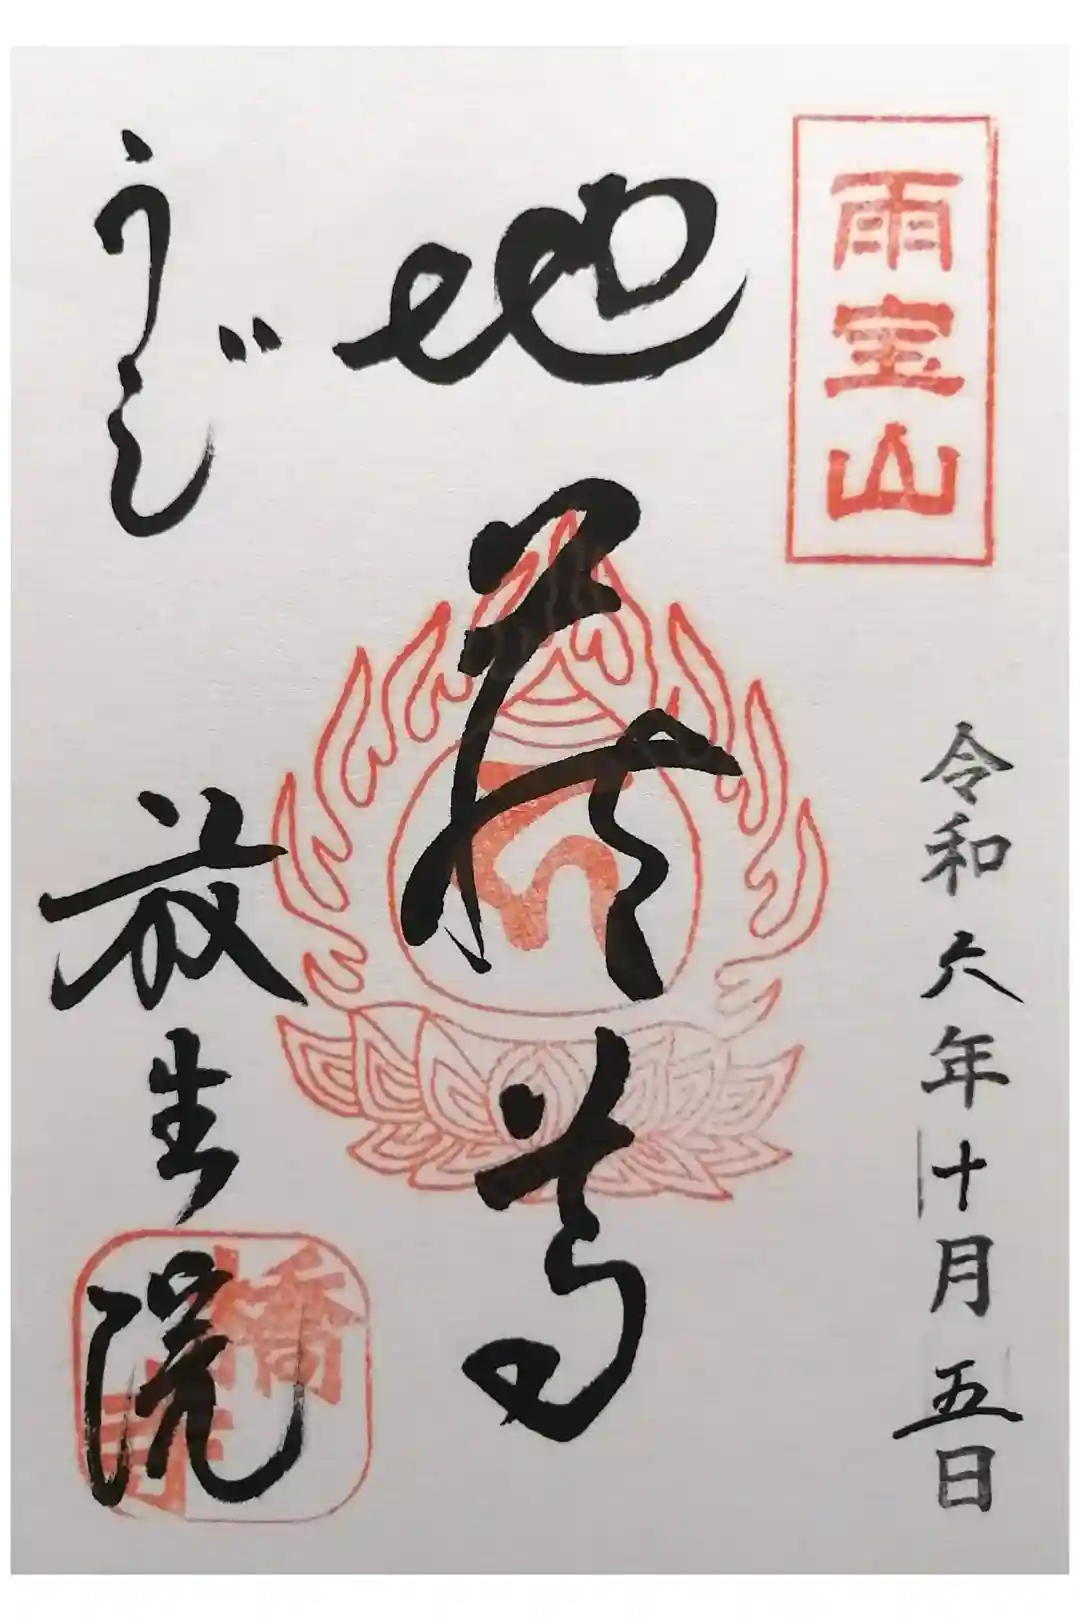 雨宝山
令和六年十月五日
地蔵尊
うぢ
放生院
橋寺